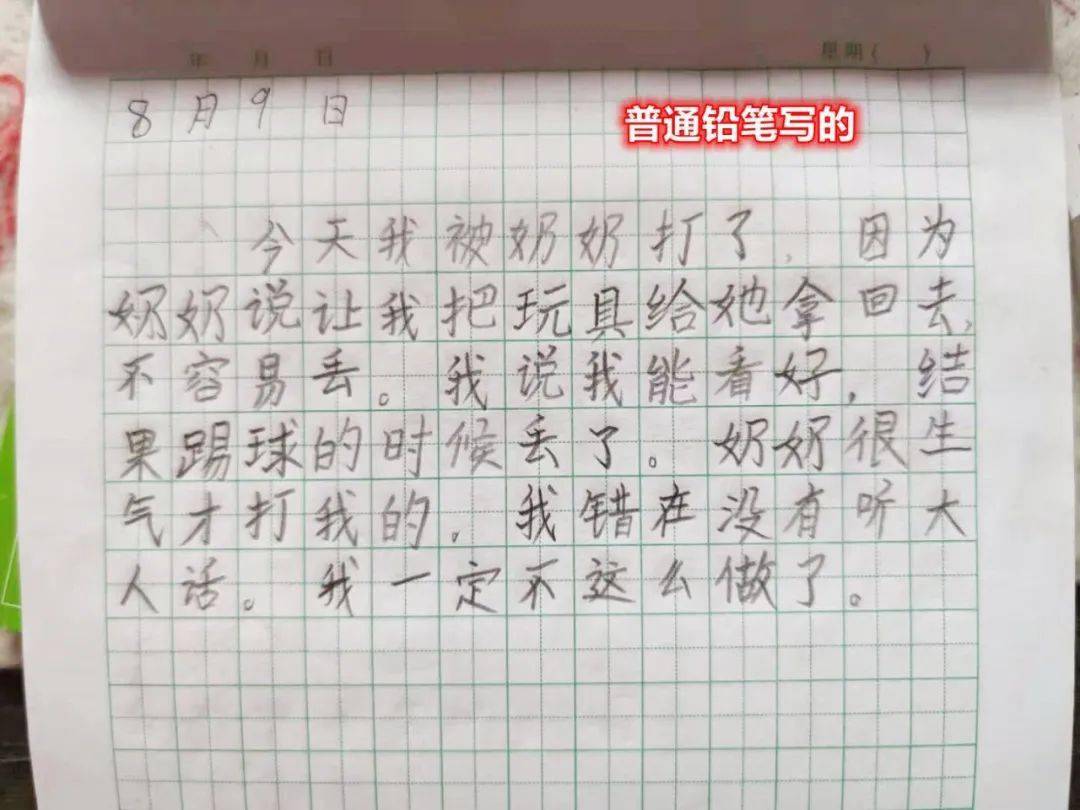 年 月 日 星期( )
8月9日
普通铅笔写的
今天我被奶奶打了,因为
奶奶说让我把玩具给她拿回去,
不容易丢。我说我能看好,结
果踢球的时候丢了。奶奶很生
气才打我的.我错在没有听大
人话。我一定不这么做了。